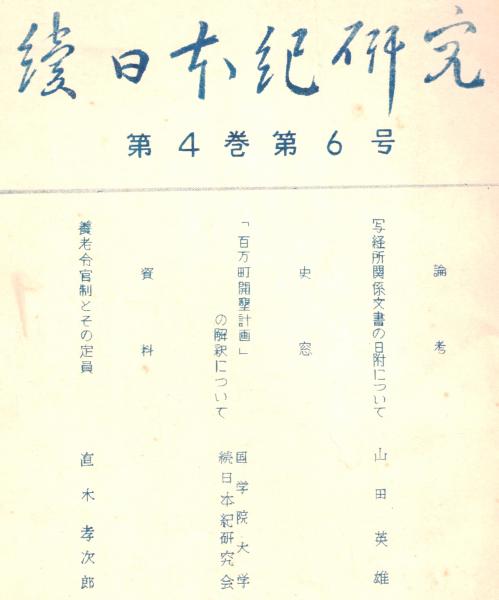 續日本紀研究
第4巻第6号
論考
写経所関係文書の日附について
山田英雄
史窓
「百万町開墾計画」
の解釈について
国学院大学
続日本紀研究会
資料
養老令官制とその定員
直木孝次郎